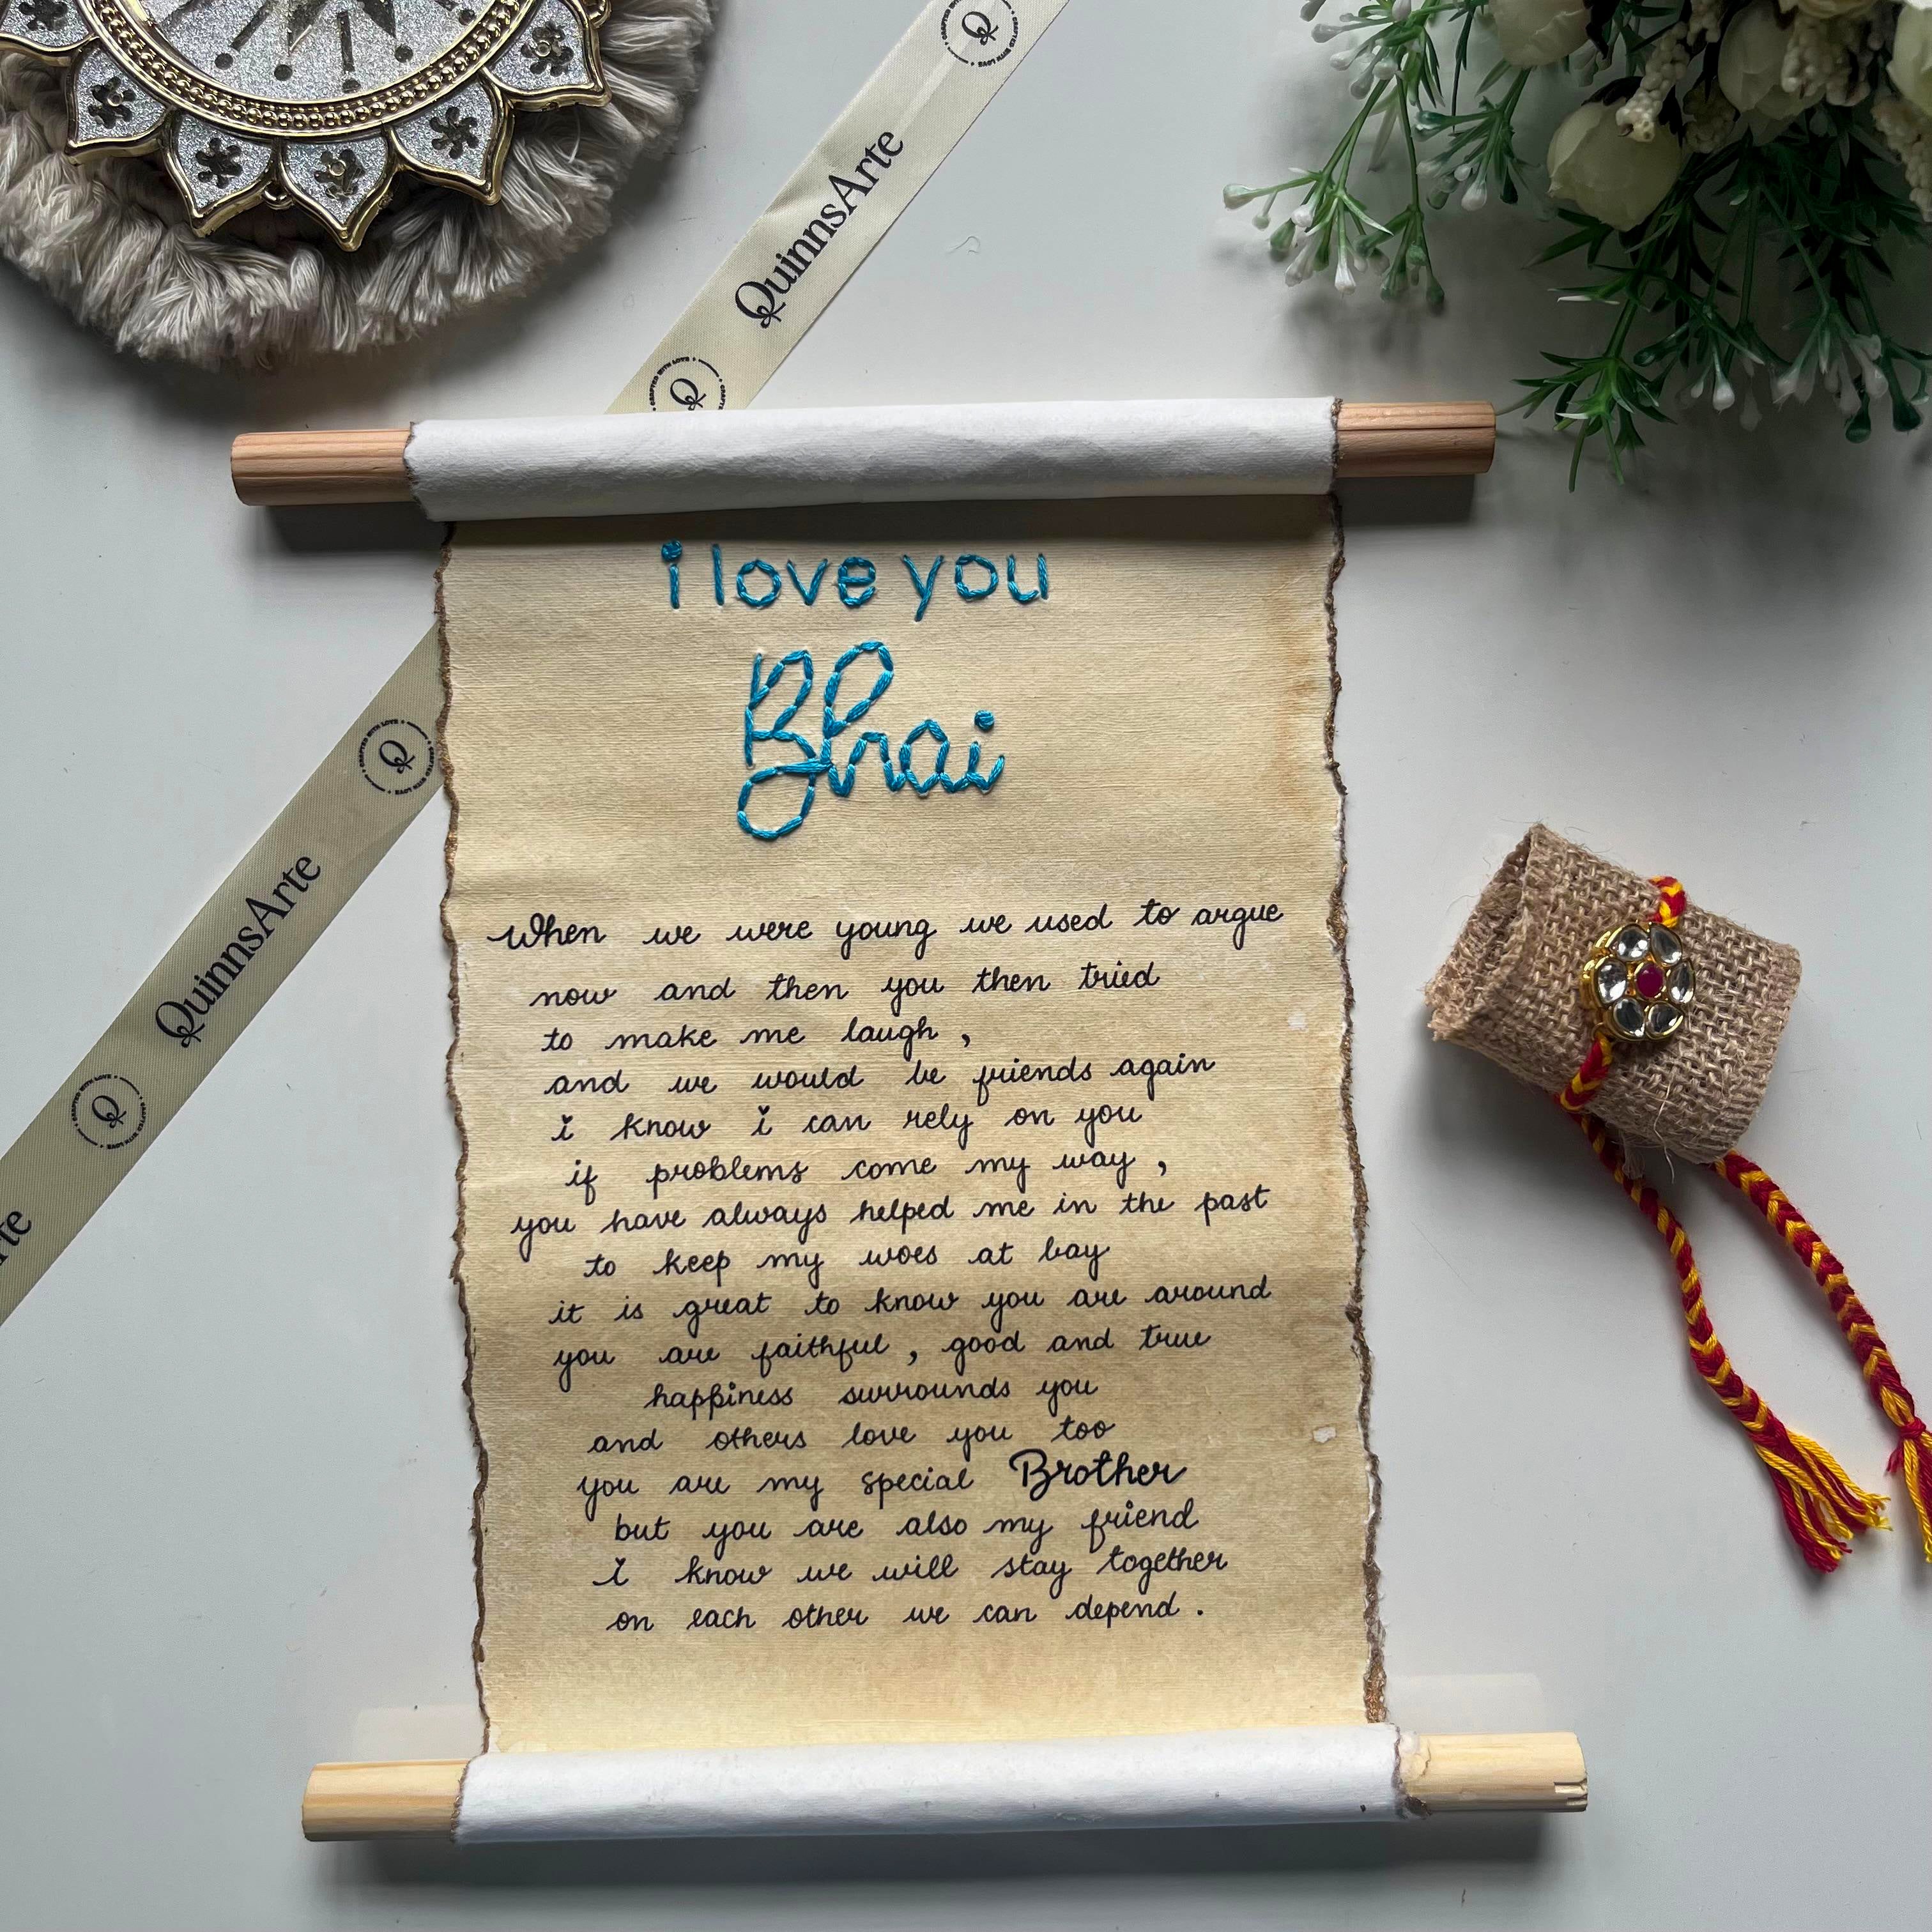 CRAFTED WITH LOVE
QuinnsArte
CRAFTED WITH LOVE
i love you
Bhai
CRAFTED WITH LOVE CRAFTED WITH LOVE
QuinnsArte
CRAFTED WITH LOVE CRAFTED WITH LOVE
rte
When we were young we used to argue
now and then you then tried
to make me laugh ,
and we would be friends again
i know i can rely on you
if problems come my way ,
you have always helped me in the past
to keep my woes at bay
it is great to know you are around
you are faithful , good and true
happiness surrounds you
and others love you too
you are my special Brother
but you are also my friend
i know we will stay together
on each other we can depend .